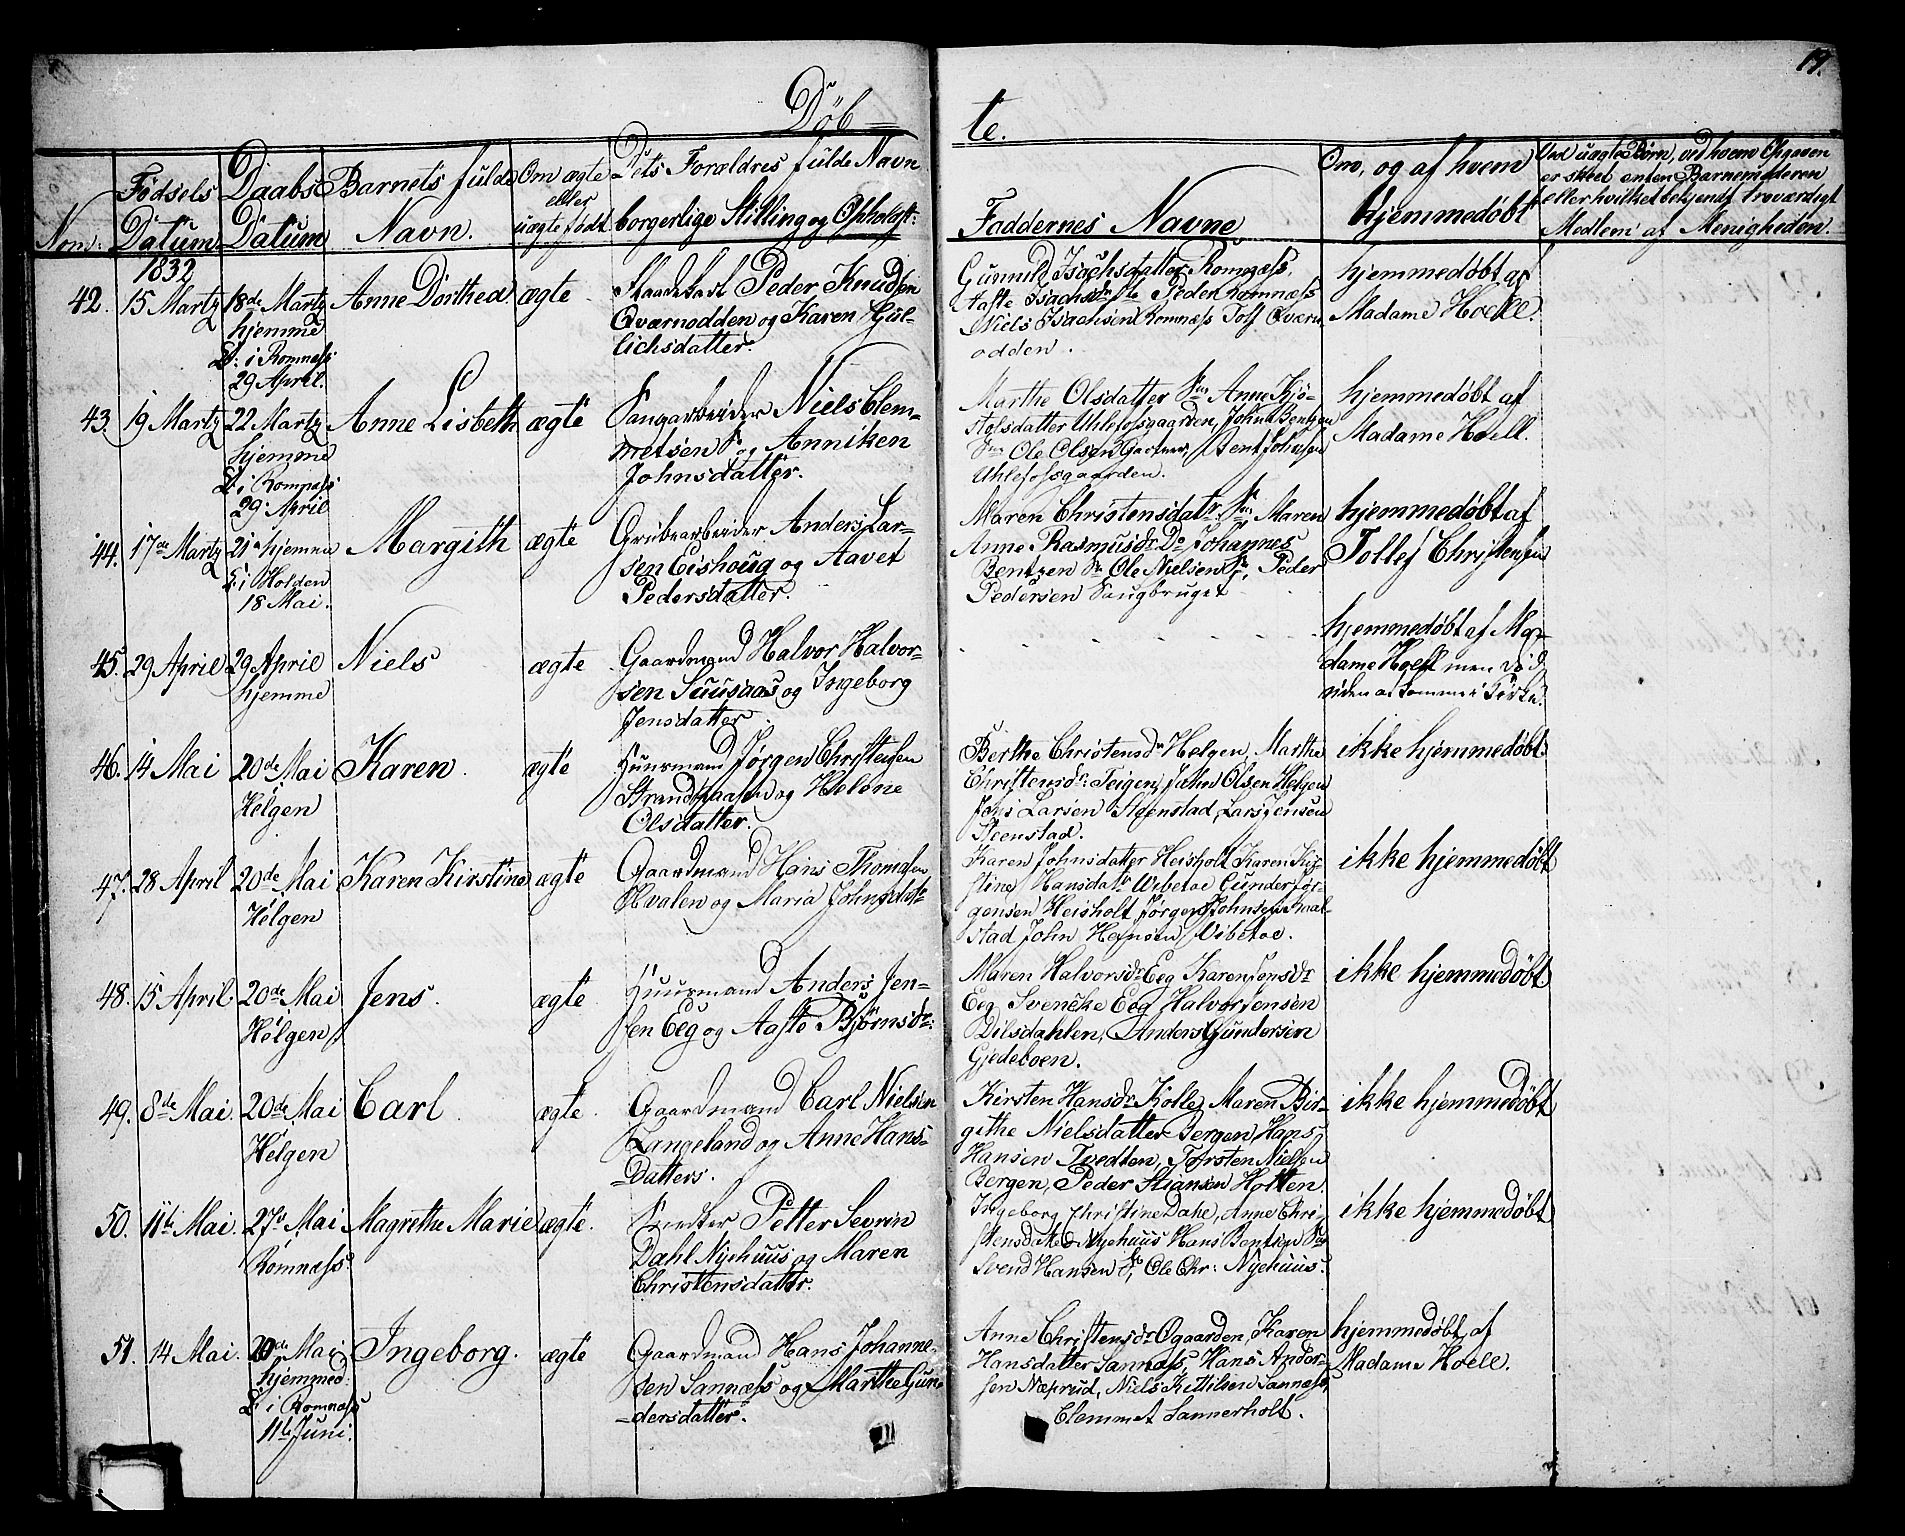 19.
Döb te.
Nom:
Födsels Datum
Daabs Datum
Barnets fulde Navn.
Om ægte eller uægte födt
Dets Forældres fulde Navn borgerlige Stilling og Opholdst:
Faddernes Navne
Om, og af hvem hjemmedöbt
Ved uægte Börn, ved hvem Opgaven er skeet enten Barnemoderen eller hvilket bekjendt troværdigt Medlem af Menigheden.
1832
42. 15 Martz
18de Martz
hjemme
D: i Romnæss
29 April.
Anne Dorthea
ægte
Peder Knudsen
Qværnodden og Karen Gul-
lichsdatter.
Gunnild Isachsdatter Romnæss,
Peder Romnæss
Niels Isachsen Romnæss
odden.
hjemmedöbt af
Madame Hoell.
43. 19 Martz
22 Martz
hjemme
D: i Romnæss
29 April
Anne Lisbeth
ægte
Saugarbeider Niels Clem-
metsen og Anniken
Johnsdatter.
Marthe Olsdatter Anne Kjö-
stolsdatter Uhlefossgaarden, John Bentzen
Ole Olsen Gartner, Bent Johnsen
Uhlefossgaarden.
hjemmedöbt af
Madame Hoell.
44. 17de Martz
21de hjemme
D: i Holden
18 Mai.
Margith
ægte
Grubearbeider Anders Lar-
sen Eishoug og Aavet
Pedersdatter.
Maren Christensdatr Maren
Anne Rasmusdr Do Johannes
Bentzen Ole Nielsen Peder
Pedersen Saugbruget
hjemmedöbt af
Tollef Christensen
45. 29 April
29 April
hjemme
Niels
ægte
Gaardmand Halvor Halvor-
sen Suusaas og Ingeborg
Jensdatter.
hjemmedöbt af Ma-
dame Hoell men död
siden
46. 14 Mai
20de Mai
Helgen
Karen
ægte
Huusmand Jörgen Christensen
og Helene
Olsdatter.
Berthe Christensdr Helgen, Marthe
Christensdr: Teigen, John Olsen Helgen
Larsen Steenstad, Lars Jensen
Steenstad.
ikke hjemmedöbt.
47. 28 April
20de Mai
Helgen
Karen Kirstine
ægte
Gaardmand Hans Thomesen
og Maria Johnsdatr
Karen Johnsdatter Heisholt Karen Kir-
stine Hansdatr Vibetoe Gunder Jör-
gensen Heisholt Jörgen Johnsen
stad John Hansen Vibetoe.
ikke hjemmedöbt
48. 15 April
20de Mai
Helgen
Jens.
ægte
Huusmand Anders Jen-
sen Eeg og Aaste Björnsdr:
Maren Halvorsdr Eeg Karen Jensdr
Eeg Svencke Eeg Halvor Jensen
Dilsdahlen, Anders Gundersen
Gjedeboen.
ikke hjemmedöbt
49. 8de Mai.
20de Mai
Helgen
Carl.
ægte.
Gaardmand Carl Nielsen
Langeland og Anne Hans-
Datter.
Kirsten Hansdr Kolle, Maren Bir-
githe Nielsdatter Bergen, Hans
Hansen Tvedten, Torsten Nielsen
Bergen, Peder Stiansen Holten.
ikke hjemmedöbt
50. 11te Mai.
27de Mai
Romnæss
Magrethe Marie
ægte.
Petter Severin
Dahl Nyehuus og Maren
Christensdatter.
Ingeborg Christine Dahl, Anne Chri-
stensdatter Nyehuus Hans Bentsen
Svend Hansen Ole Chr: Nyehuus.
ikke hjemmedöbt
51. 14 Mai.
20de Mai
hjemmed.
D: i Romnæss
11te Juni.
Ingeborg.
ægte
Gaardmand Hans Johanne-
sen Sannæss og Marthe Gun-
dersdatter.
Anne Christensdr Ögaarden, Karen
Hansdatter Sannæss, Hans Ander-
sen Næprud, Niels Kittilsen Sannæss,
Clemmet Sannerholt.
hjemmedöbt af
Madame Hoell.